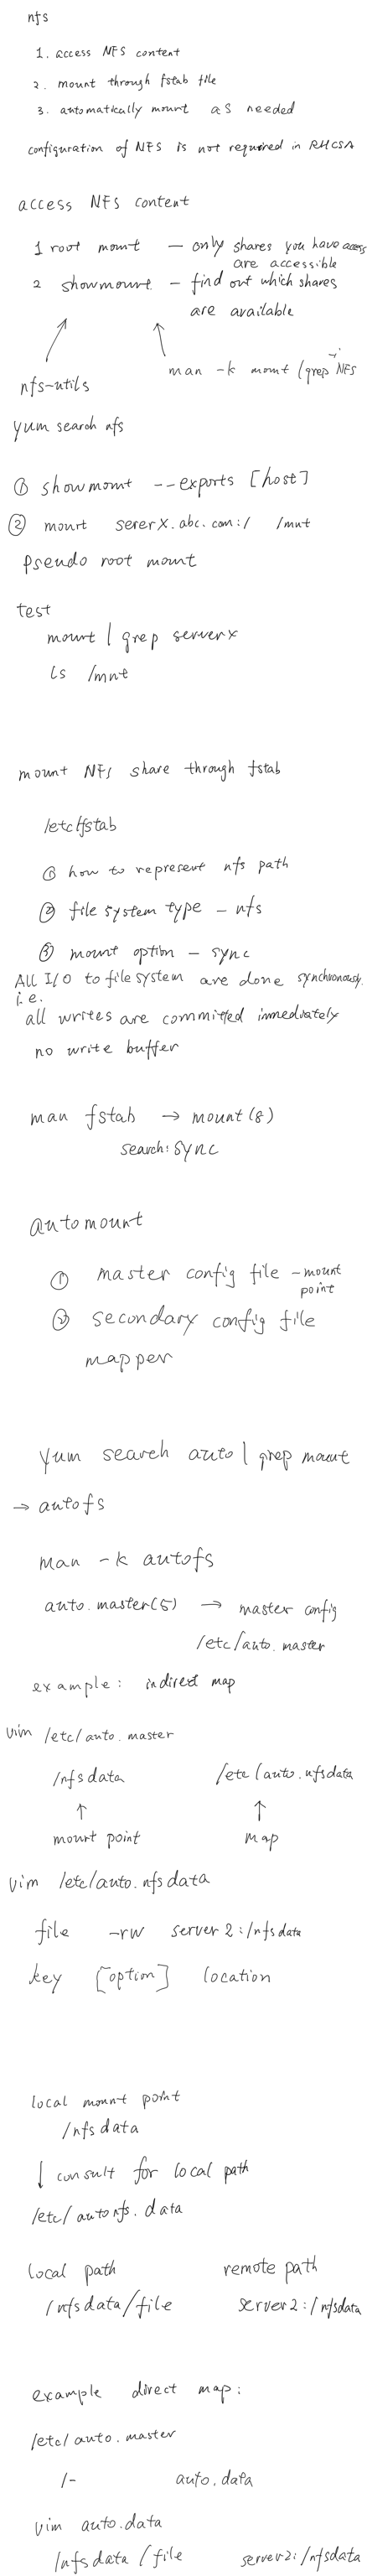 nfs
1. access NFS content
2. mount through fstab file
3. automatically mount as needed
configuration of NFS is not required in RHCSA
access NFS content
1 root mount — only shares you have access
are accessible
2 showmount — find out which shares
are available
nfs-utils
man -k mount | grep -i NFS
yum search nfs
① showmont --exports [host]
② mount serverX.abc.com:/ /mnt
pseudo root mount
test
mount | grep serverx
ls /mnt
mount NFS share through fstab
/etc/fstab
① how to represent nfs path
② file system type - nfs
③ mount option - sync
All I/O to file system are done synchronously.
i.e.
all writes are committed immediately
no write buffer
man fstab → mount(8)
search: sync
automount
① master config file - mount
point
② secondary config file
mapper
yum search auto | grep mount
→ autofs
man -k autofs
auto.master(5) → master config
/etc/auto.master
example: indirect map
vim /etc/auto.master
/nfsdata /etc/auto.nfsdata
↑ ↑
mount point map
vim /etc/auto.nfsdata
file -rw server2:/nfsdata
key [option] location
local mount point
/nfsdata
↓ consult for local path
/etc/autonfs.data
local path remote path
/nfsdata/file server2:/nfsdata
example direct map:
/etc/auto.master
/- auto.data
vim auto.data
/nfsdata/file server2:/nfsdata